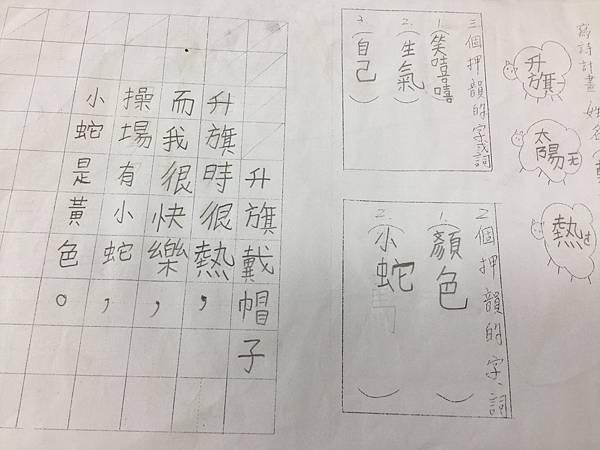 寫詩計畫 姓名
升旗
太陽
熱
三個押韻的字或詞
1.(笑嘻嘻)
2.(生氣)
3.(自己)
2個押韻的字、詞
1.(顏色)
2.(小蛇)
升旗戴帽子
升旗時很熱，
而我很快樂，
操場有小蛇，
小蛇是黃色。